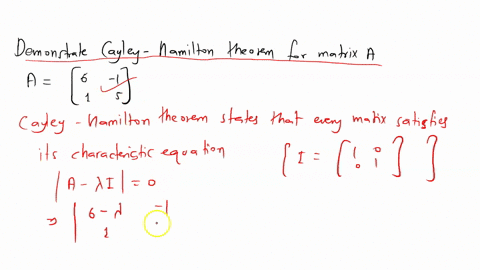 Demonstrate Cayley-Hamilton theorem for matrix A
A = [ 6 -1
1 5 ]
Cayley-Hamilton theorem states that every matix satisfies
its characteristic equation [ I = [ 1 0
0 1 ] ]
|A - λI| = 0
⇒ | 6-λ -1
1